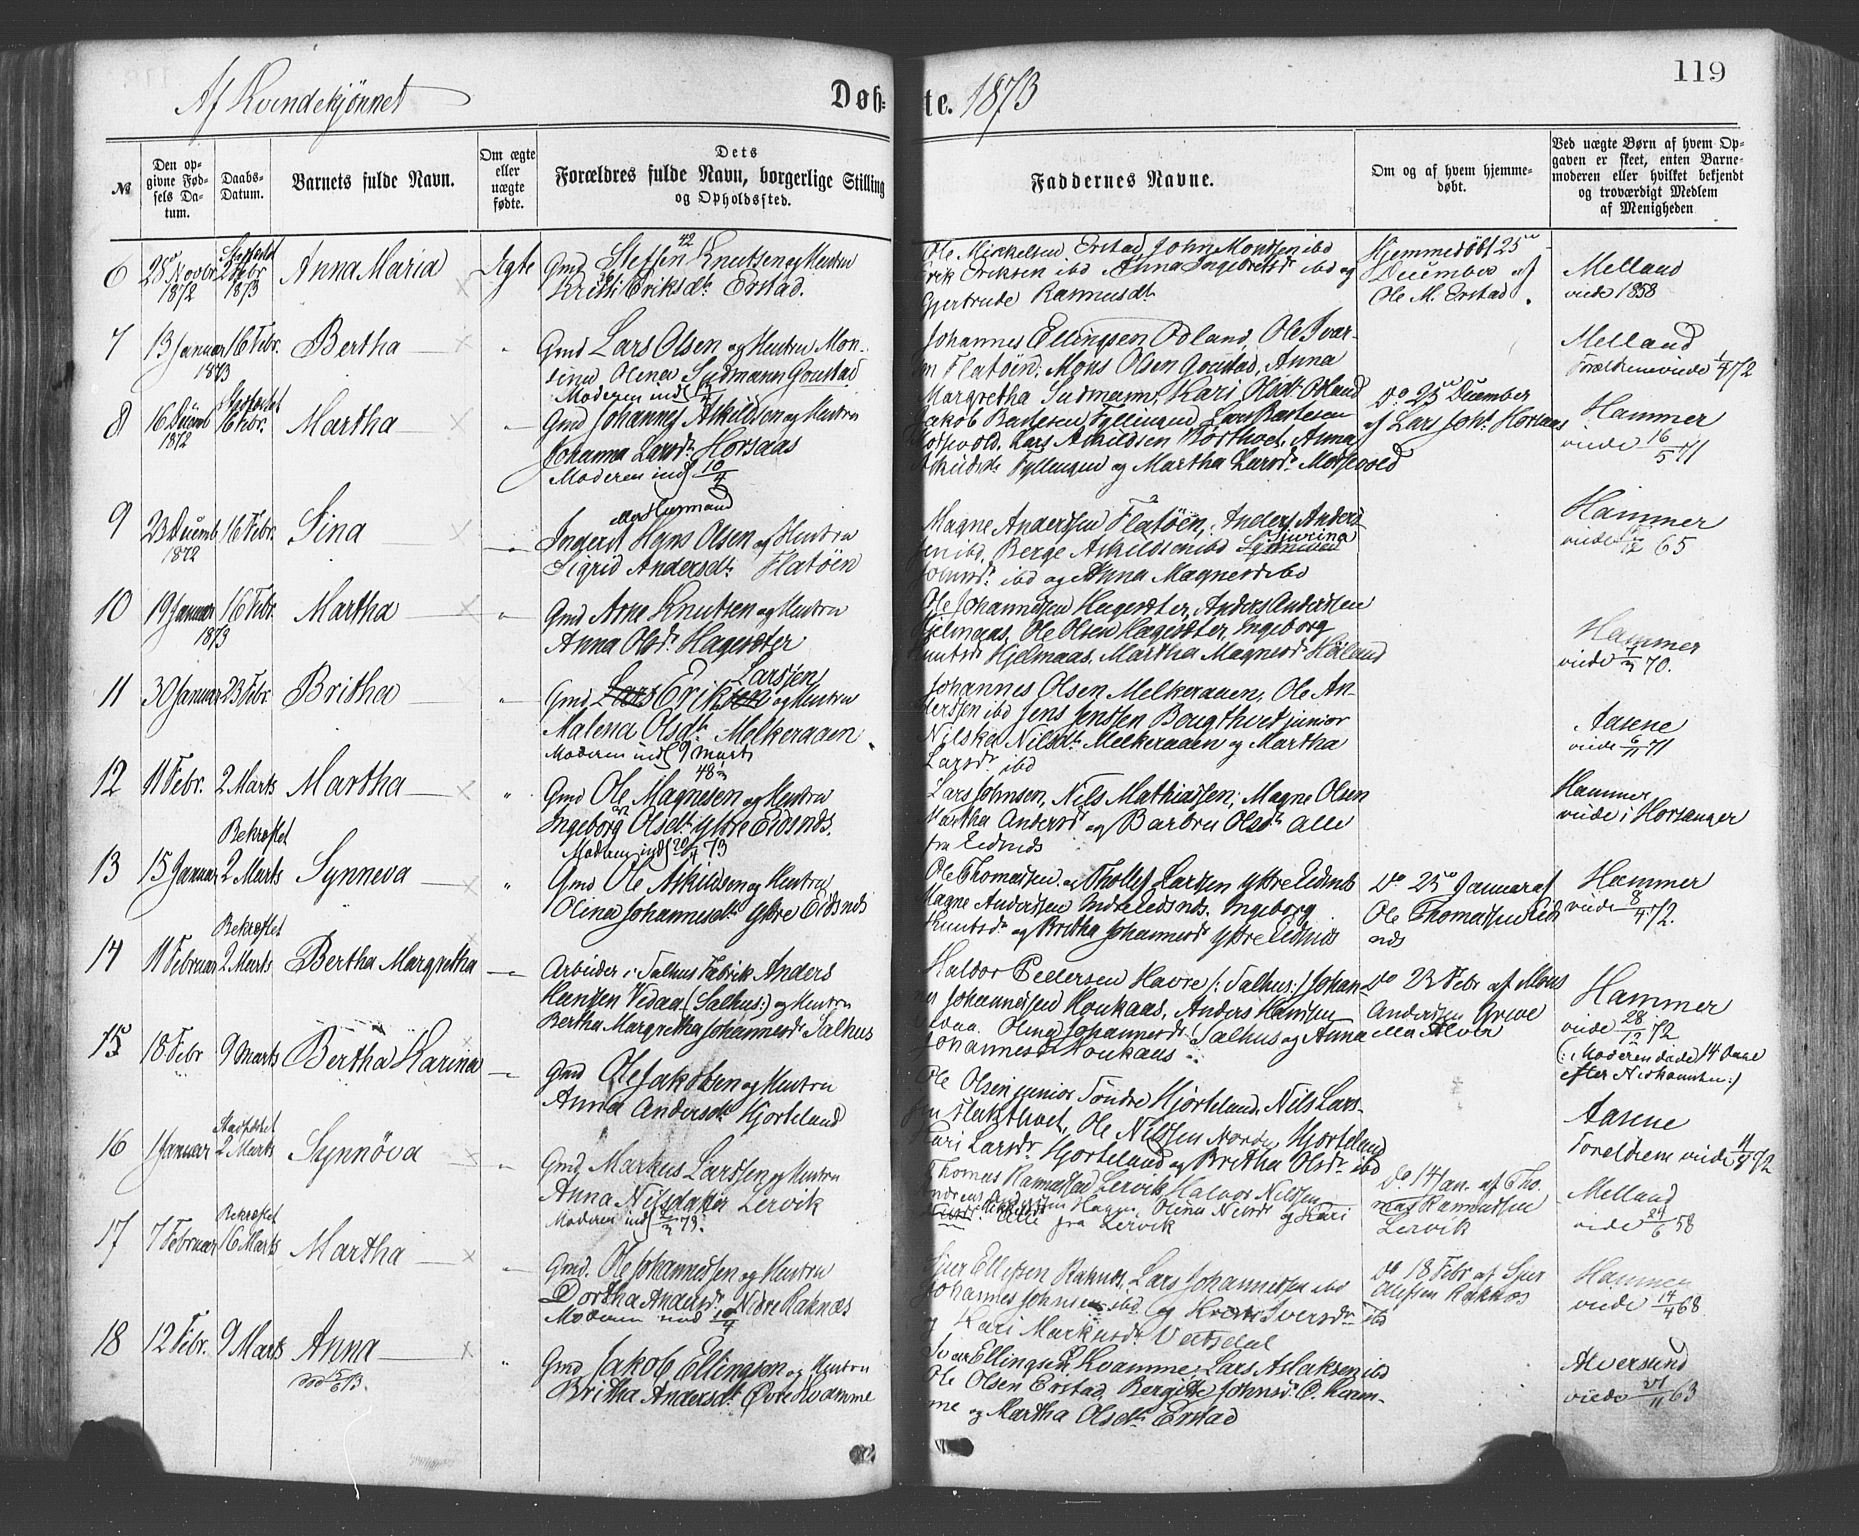 119
Af Kvindekjønnet
Døb=
te. 1873
№
Den op-
givne Fød-
sels Da-
tum.
Daabs-
Datum.
Barnets fulde Navn.
Om ægte
eller
uægte
fødte.
Dets
Forældres fulde Navn, borgerlige Stilling
og Opholdssted.
Faddernes Navne.
Om og af hvem hjemme-
døbt.
Ved uægte Børn af hvem Op-
gaven er skeet, enten Barne-
moderen eller hvilket bekjendt
og troværdigt Medlem
af Menigheden
6
25 Novbr
1872
2 Febr
1873
Anna Maria
Ægte
42
Gmd Steffen Knutsen og Hustru
Kristi Eriksdtr Erstad.
Ole Mickelsen Erstad, John Monssen ibd
Erik Eriksen ibd Anna Ingebretsdr ibd og
Gjertrude Rasmusdtr
Hjemmedøbt 25
December af
Ole M. Erstad.
Melland
viede 1858
7
13 Januar
1873
16 Febr.
Bertha
"
Gmd Lars Olsen og Hustru Mon-
sine Olina Sudmann Goustad
Moderen inds
Johannes Ellingsen Odland, Ole Ivar-
sen Flatøen, Mons Olsen Goustad, Anna
Margretha Sudmann, Kari Olsdtr Odland
Melland
Forældrene viede 1/4 72
8
16 Decemb
1872
16 Febr.
Martha
"
Gmd Johannes Askildsen og Hustru
Johanna Larsdr Horsaas
Moderen inds 10/4
Jakob Baltesen Fyllingen, Lars Baltesen
Mosevold, Lars Askildsen Børthvet, Anna
Askildsdr Fyllingen og Martha Larsdr Mosevold
Do 25 December
af Lars Joh. Horsaas
Hammer
viede 16/5 71
9
23 Decemb
1872
16 Febr.
Sina
"
Ingerd Hans Olsen og Hustru
Sigrid Andersdtr Flatøen
Magne Anderssen Flatøen, Anders Anders-
sen ibd, Berge Askildsen ibd
Sjurina
Johnsdr ibd og Anna Magnesdr ibd
Hammer
viede 65
10
19 Januar
1873
16 Febr
Martha
"
Gmd Arne Knutsen og Hustru
Anna Olsdr Hagesæter
Ole Johannessen Hagesæter, Anders Anderssen
Hjelmaas, Ole Olsen Hagesæter, Ingeborg
Knutsdr Hjelmaas, Martha Magnesdr Høiland
Hammer
viede 70.
11
30 Januar
23 Febr.
Britha
"
Larssen
Gmd Lars Eriksen og Hustru
Malena Olsdtr Melkeraaen
Moderen inds 9 Marts
Johannes Olsen Melkeraaen, Ole An-
derssen ibd Jens Jenssen Bougthvet junior
Nilska Nilsdtr Melkeraaen og Martha
Larsdr ibd
Aasene
viede 6/11 71
12
11 Febr.
2 Marts
Martha
"
48
Gmd Ole Magnesen og Hustru
Ingeborg Olsdtr Ytre Eidsnds.
Moderen inds 20/4 73
Lars Johnsen, Nils Mathiassen, Magne Olsen
Martha Andersdr og Barbru Olsdtr alle
fra Eidsnds
Hammer
viede i Horsanger
13
15 Januar
Bekræftet
2 Marts
Synneva
"
Gmd Ole Askildsen og Hustru
Olina Johannesdtr Ytre Eidsnds
Ole Thomassen og Thollef Larsen Ytre Eidsnds
Magne Anderssen Indre Eidsnds. Ingeborg
Knutsdr og Britha Johannesdr Ytre Eidsnds
Do 25 Januar af
Ole Thomassen Eids-
nds
Hammer
viede 8/4 72.
14
11 Februar
Bekræftet
2 Marts
Bertha Margretha
"
Arbeider i Salhus Fabrik Anders
Hanssen Vedaa (Salhus:) og Hustru
Bertha Margretha Johannesdr Salhus
Haldor Pedersen Havre /: Salhus:/ Johan-
nes Johannessen Houkaas, Anders Hanssen
Vedaa. Olina Johannesdr Salhus og Anna
Johannesdr Houkaas
Do 23 Febr af Mons
Andersen Greve
Hammer
viede 28/12 72
(: Moderen døde 14 Dage
efter Nedkomsten:)
15
18 Febr
9 Marts
Bertha Karina
"
Gmd Ole Jakobsen og Hustru
Anna Andersdtr Hjorteland
Ole Olsen junior Søndre Hjorteland, Nils Lars-
sen, Ole Nilssen Nordre Hjorteland
Kari Larsdr Hjorteland og Britha Olsdr ibd
Aasene
Forældrene viede 72
16
1 Januar
Stadfæstet
2 Marts
Synnøva
"
Gmd. Markus Larssen og Hustru
Anna Nilsdatter Lervik
Moderen inds 73.
Thomas Rasmussen Lervik, Haldor Nilssen
Alle fra Lervik
Do 14 Jan. af Tho-
mas Rasmussen
Lervik
Melland
viede 24/6 58
17
7 Februar
Bekræftet
16 Marts
Martha
"
Gmd. Ole Johannessen og Hustru
Dorthea Andersdr Nedre Raknæs
Moderen inds 10/4
Sjur Ellefsen Raknæs, Lars Johannessen ibd
Johannes Johnsen ibd og Iversdr ibd
og Kari Markusdr Vetsdal
Do 18 Febr af Sjur
Ellefsen Raknæs
Hammer
viede 14/4 68
18
12 Febr.
9 Marts
Anna
"
Gmd Jakob Ellingsen og Hustru
Britha Andersdtr Øvre Kvamme
Iver Ellingsen Kvamme, Lars Aslaksen ibd
Ole Olsen Erstad, Bergitte Johnsdr Ø. Kvam-
me og Martha Olsdtr Erstad
Alversund
viede 21/11 63